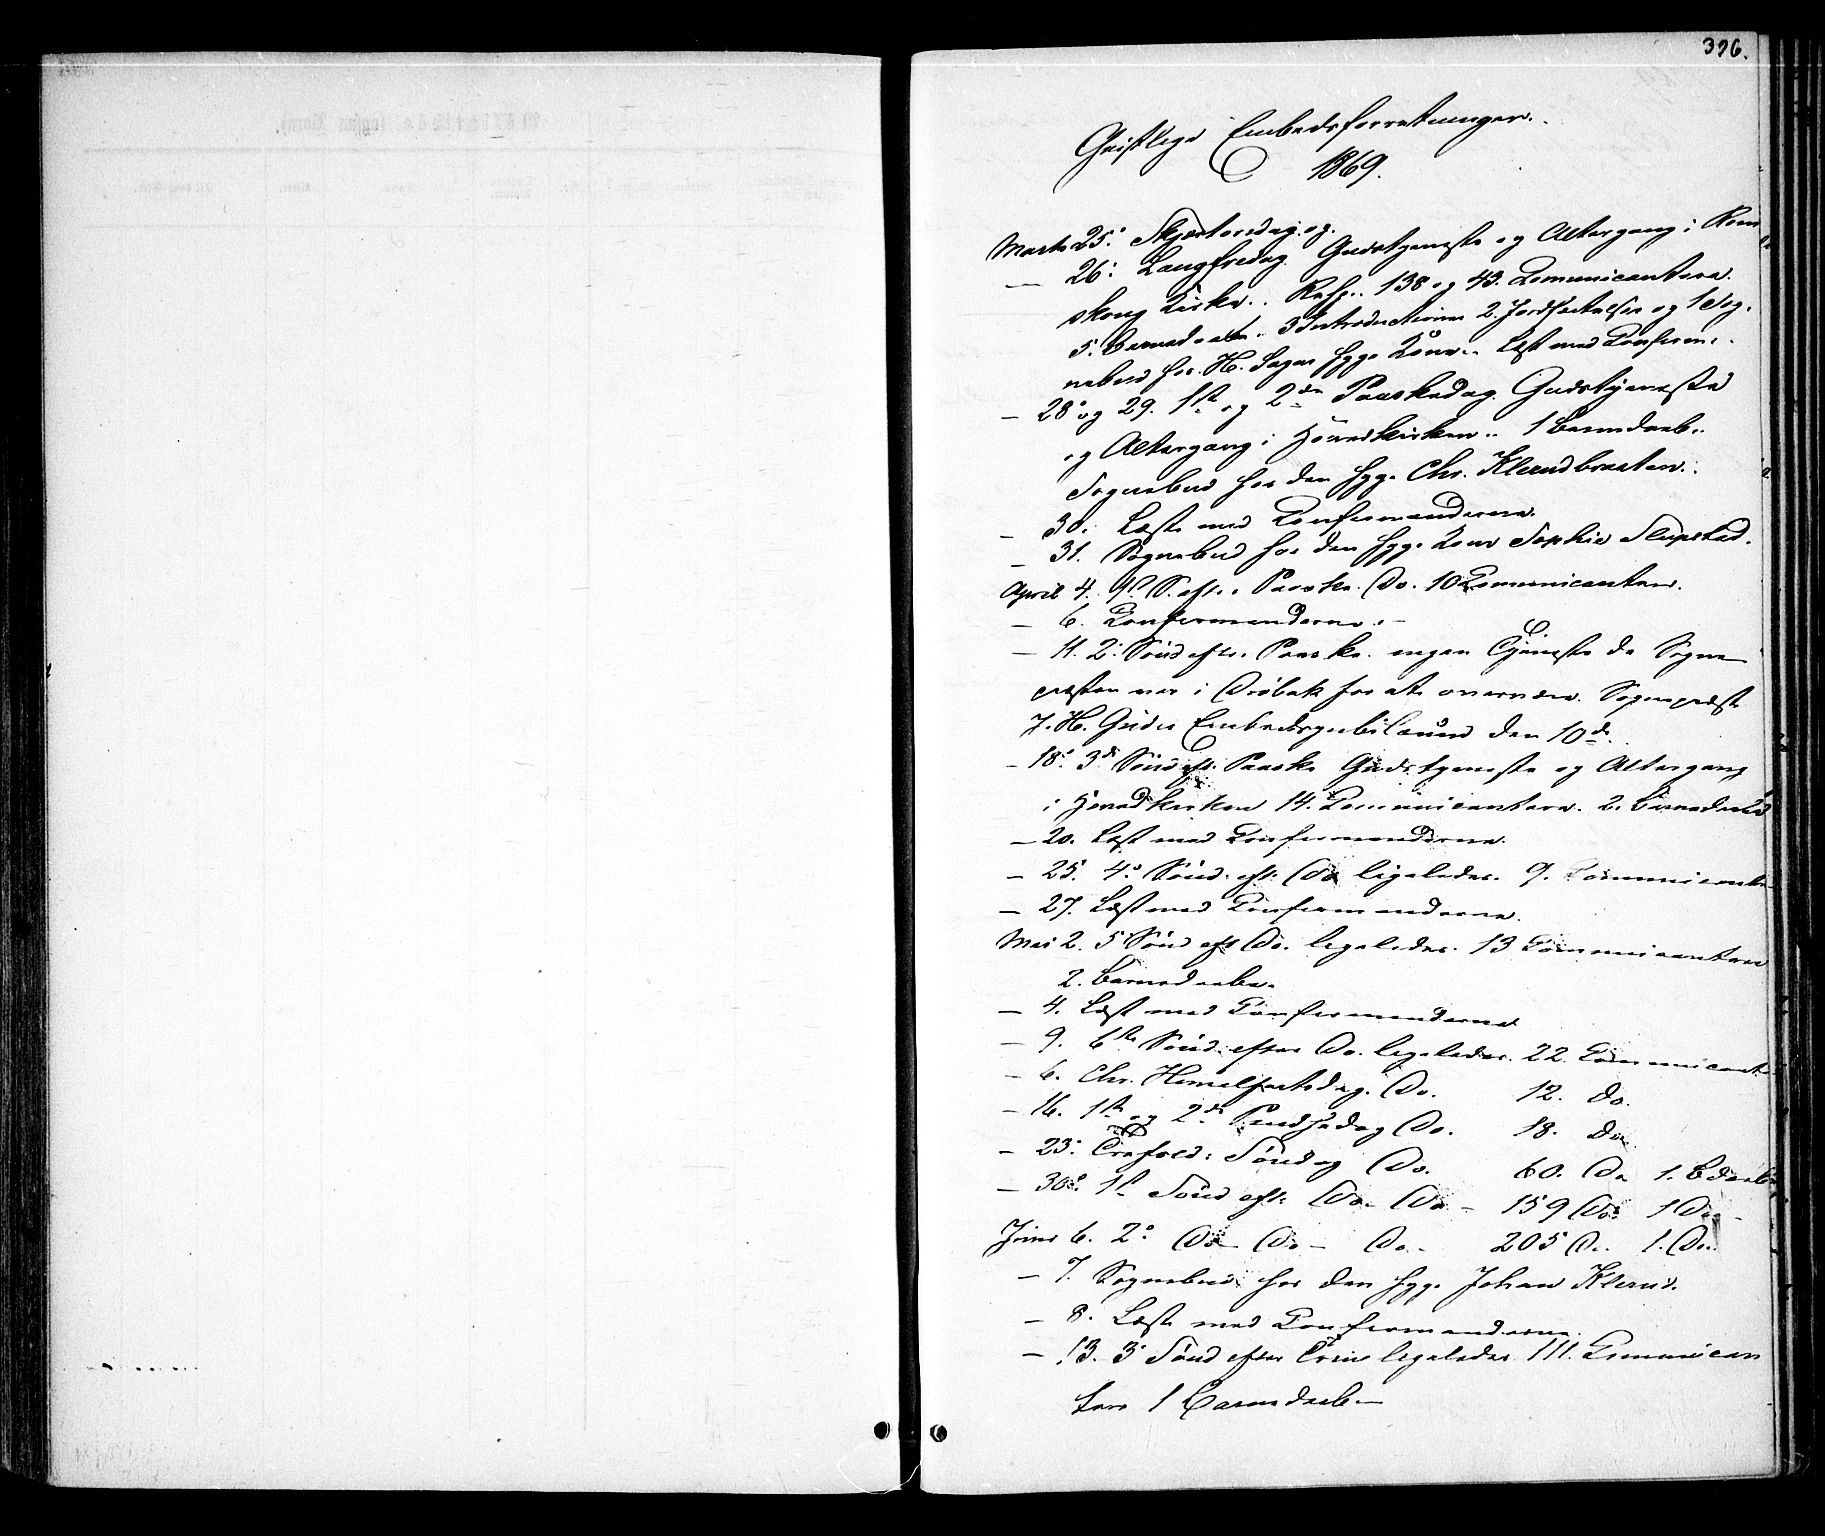 396.
Geistlige Embedsforretninger.
1869.
Marts 25. Skjærtorsdag og
— 26. Langfredag. Gudstjeneste og Altergang i Rom
skoug Kirke. Resp. 138 og 43 Communicantere.
5 Barnedaab. 3 Introductioner 2 Jordfæstelser og 1 Sog.
nebud for H. syge Kone. Læst med Confirm.
— 28 og 29. 1ste og 2den Paaskedag Gudstjeneste
og Altergang i Hovedkirken. 1 Barnedaab.
Sognebud for den syge Chr. Klerudbraaten.
— 30. Læste med Confirmanderne.
— 31. Sognebud for den syge Kone Sophie Slupstad.
April 4. 1ste S. eft. Paaske. Do. 10 Communicanter.
— 6. Confirmanderne. –
— 11. 2. Sønd eft. Paaske. ingen Tjeneste da Sogne
præsten var i Drøbak for at overvære Sognepræst
J. H. Gudes Embedsjubilæum den 10de.
— 18. 3de Sønd eft. Paaske Gudstjeneste og Altergang
i Hovedkirken 14 Communicantere. 2 Barnedaab
— 20. Læst med Confirmanderne.
— 25. 4. Sønd. eft. Do ligeledes. 9. Communicante
— 27. Læst med Confirmanderne.
Mai 2. 5 Sønd eft Do. ligeledes. 13 Communicantere
2. Barnedaabe.
— 4. Læst med Confirmanderne
— 9. 6te Sønd. efter Do. ligeledes. 22. Communicant.
— 6. Chr. Himelfartsdag. Do. 12. Do.
— 16. 1ste og 2den Pindsedag Do. 18. Do
— 23. Trefold: Søndag Do. 60. Do 1. Bdaab
— 30. 1st Sønd eft. Do. Do – 159 Do. 1 Do –
Juni 6. 2. Do – Do – Do. – 205 Do. 1. Do.
— 7. Sognebud for den syge Johan Klerud.
— 8. Læste med Confirmanderne.
— 13. 3 Sønd efter Trin ligeledes 111. Communican
tere 1 Barnedaab. —